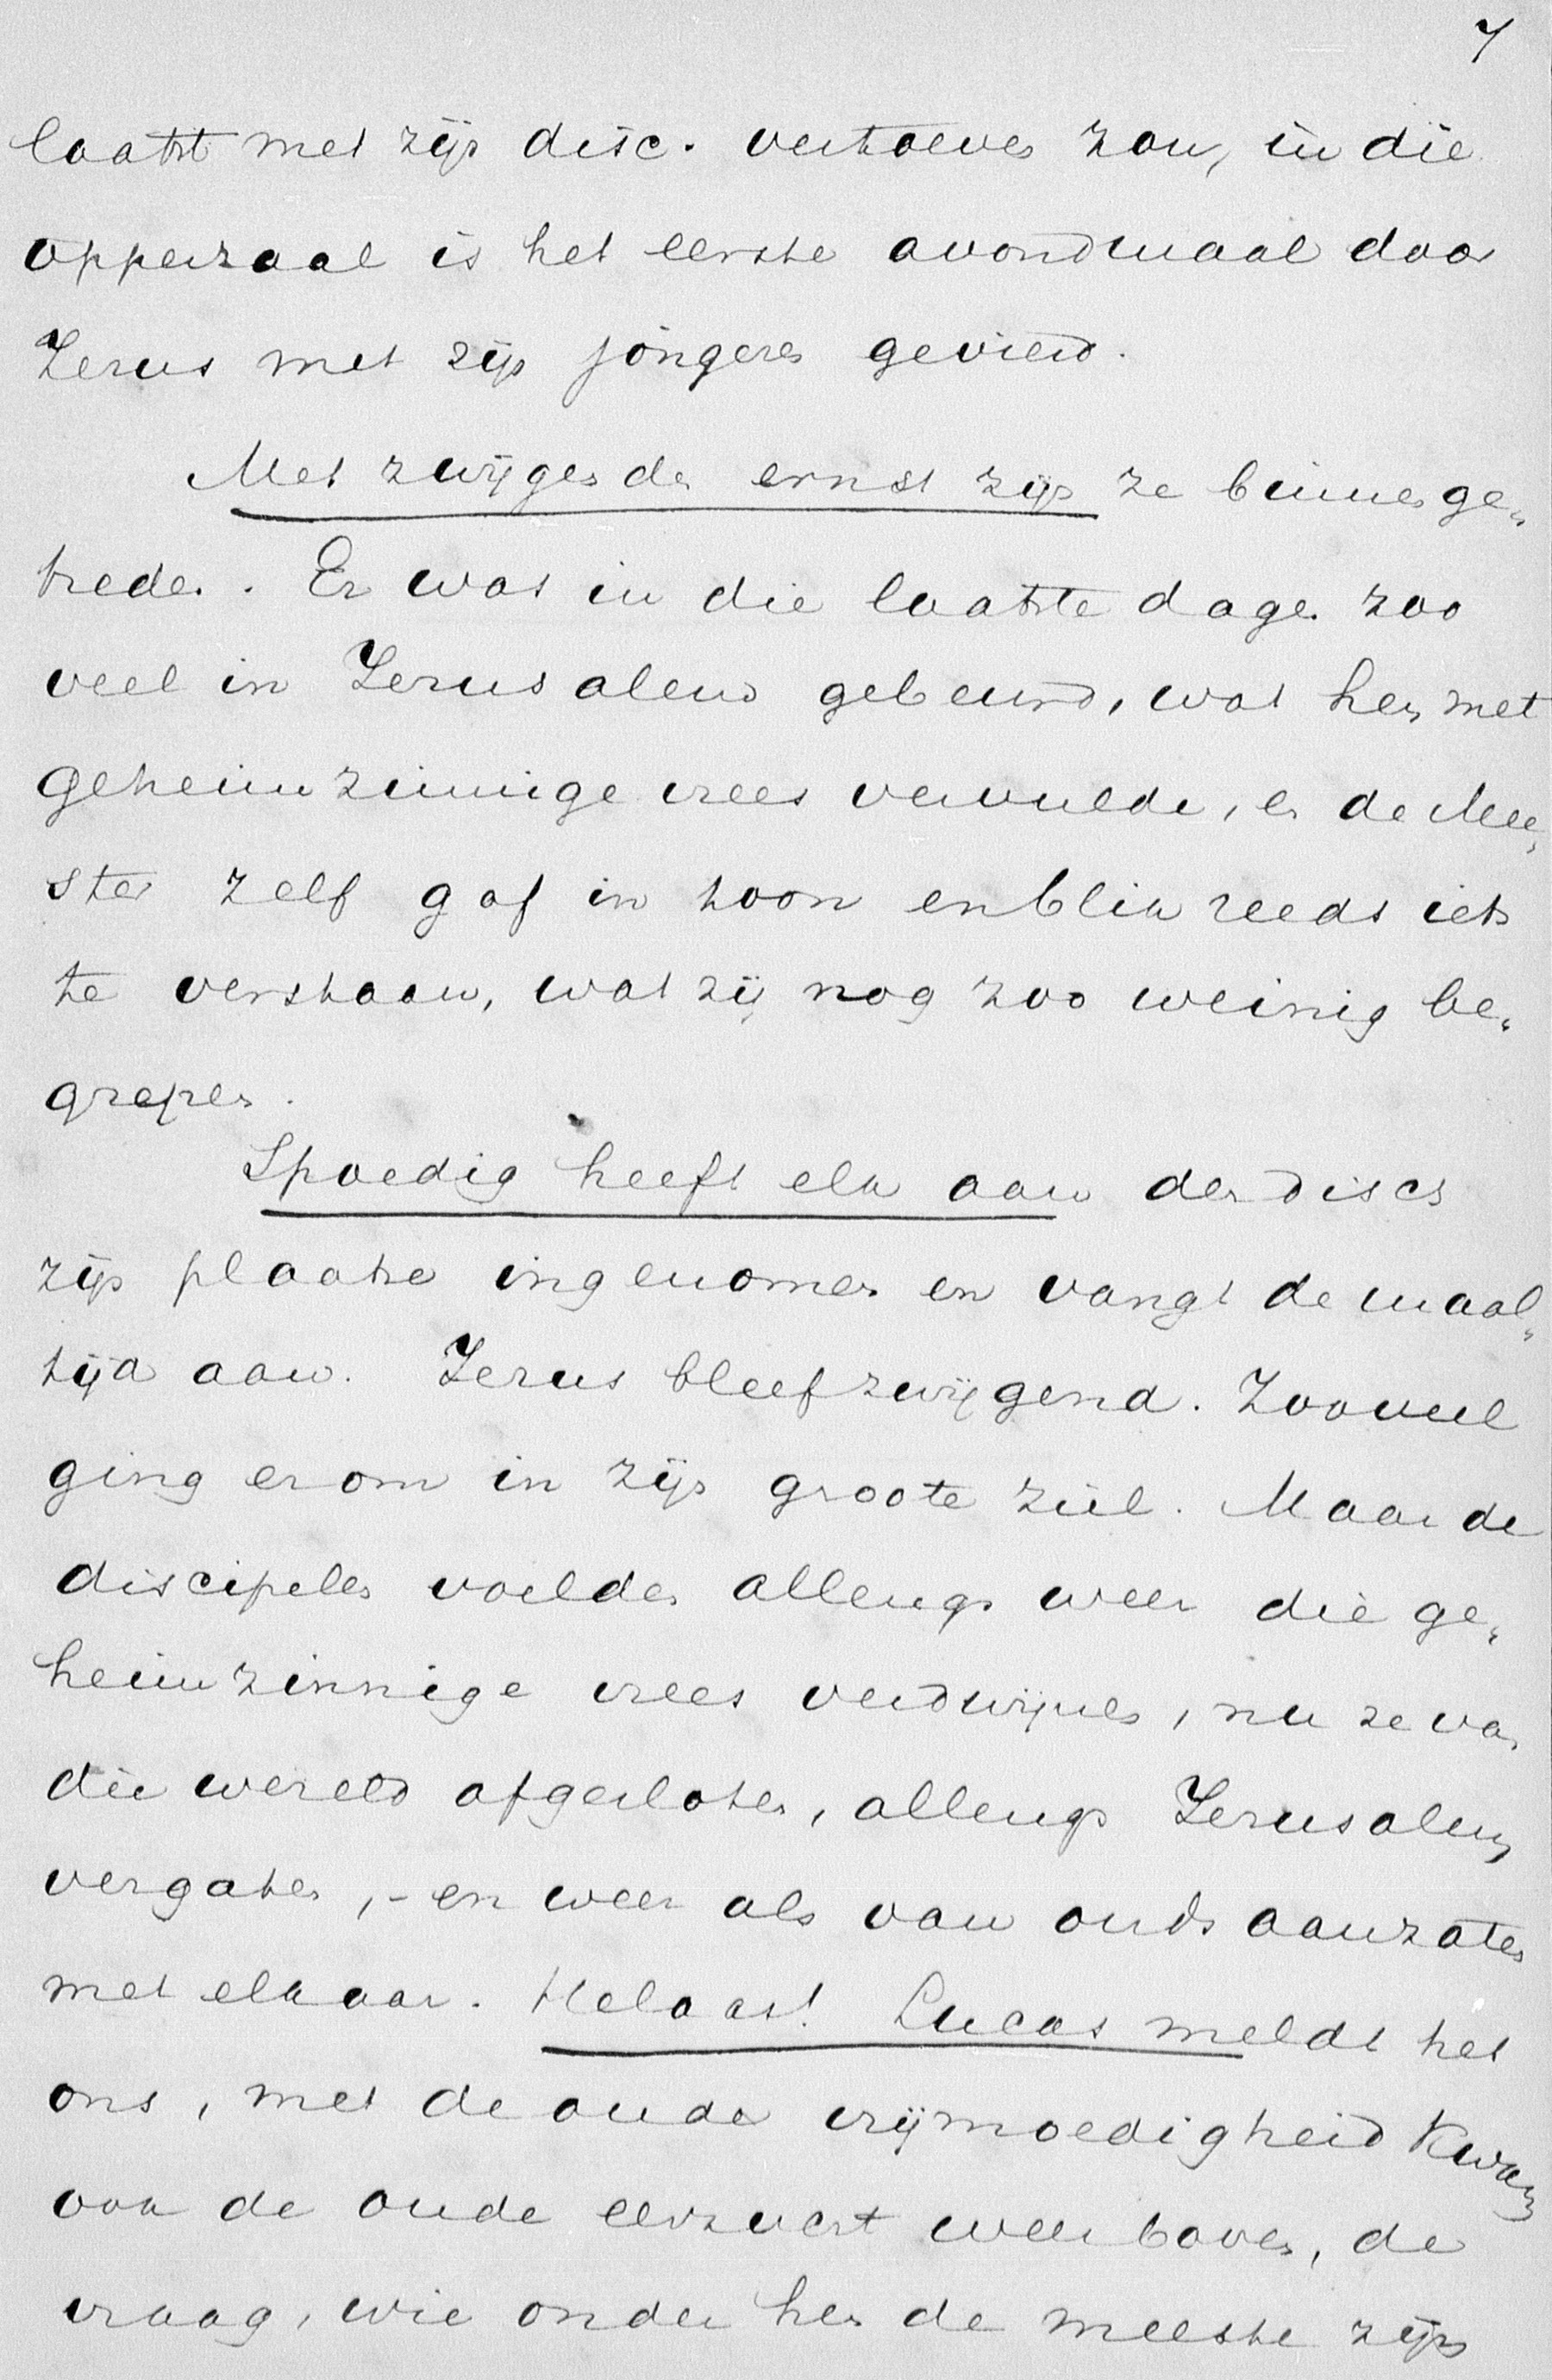 7
laatst met zijn disc. vertoeven zou, in die
opperzaal is het eerste avondmaal door
Jezus met zijn jongeren gevierd.
Met zwijgende ernst zijn ze binnenge„
treden. Er was in die laatste dagen zoo
veel in Jeruzalem gebeurd, wat hen met
geheimzinnige vrees vervulde, en de Mee„
ster zelf gaf in toon en blik reeds iets
te verstaan, wat zij nog zoo weinig be„
grepen.
Spoedig heeft elk aan den disch
zijn plaatse ingenomen en vangt de maal„
tijd aan. Jezus bleef zwijgend. Zooveel
ging er om in zijn groote ziel. Maar de
discipelen voelden allengs weer die ge„
heimzinnige vrees verdwijnen, nu ze van
die wereld afgesloten, allengs Jeruzalem
vergaten, - en weer als van ouds aanzaten
met elkaar. Helaas! Lucas meldt het
ons, met de oude vrijmoedigheid kwam
ook de oude eerzucht weer boven, de
vraag, wie onder hen de meeste zijn